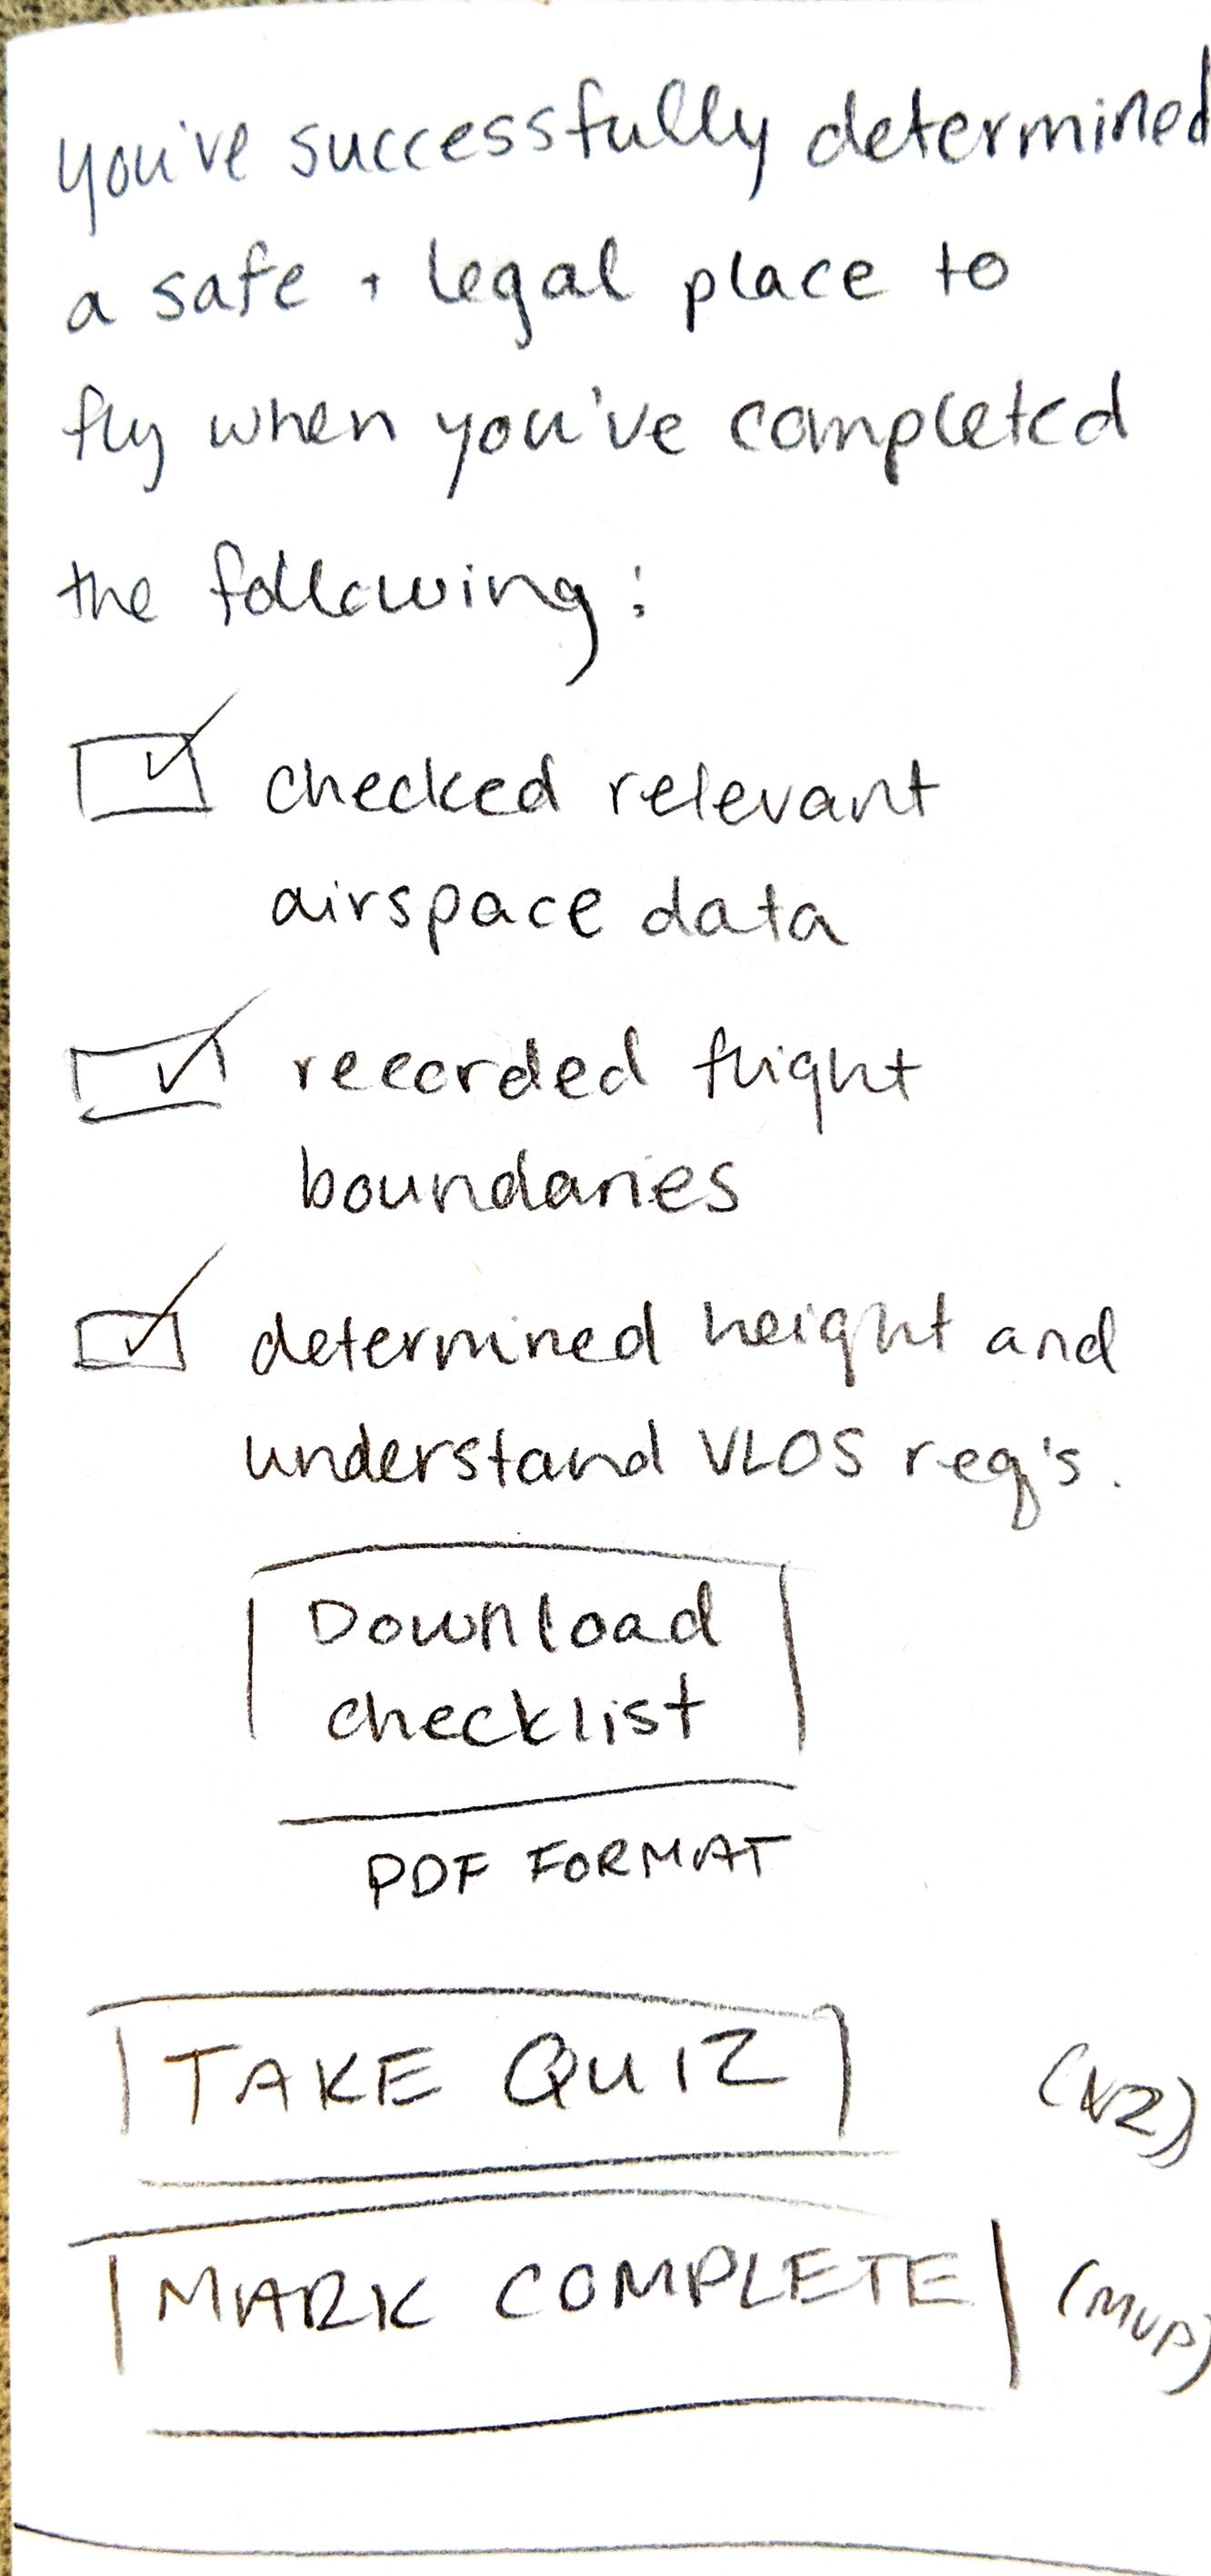 you've successfully determined
a safe + legal place to
fly when you've completed
the following:
checked relevant
airspace data
recorded flight
boundaries
determined height and
understand VLOS req's.
Download
checklist
PDF FORMAT
TAKE QUIZ (V2)
MARK COMPLETE (MVP)